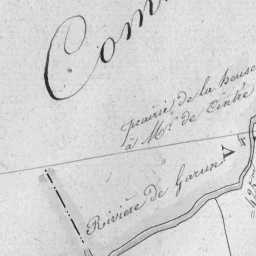 Com
prairie de la house
à Mr. de Centré
Rivière de Garun